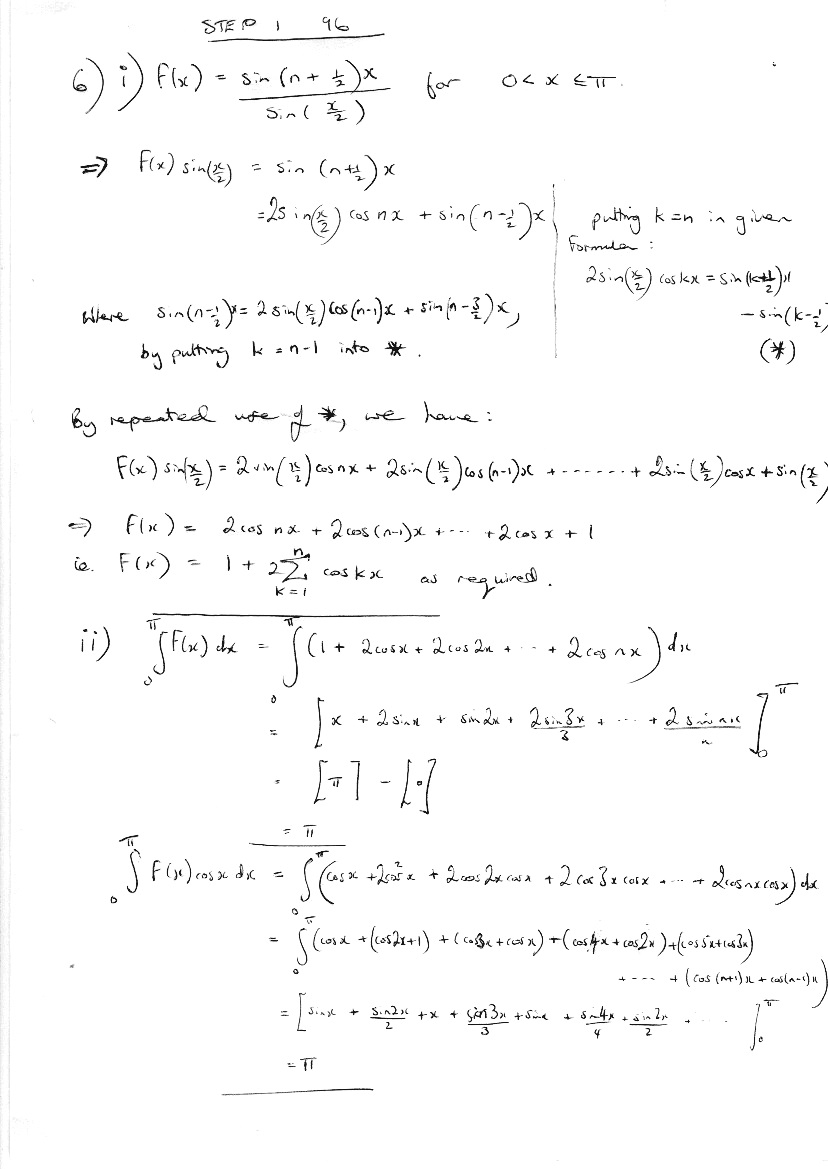 STEP 1 96
6) i) F(x) = sin (n + 1/2)x / sin (x/2) for 0 < x ≤ π.
⇒ F(x) sin(x/2) = sin (n+1/2) x
= 2sin(x/2) cos nx + sin(n-1/2)x
putting k=n in given
formula :
2sin(x/2) cos kx = sin(k+1/2)x
- sin(k-1/2)
(*)
Where sin(n-1/2)x = 2 sin(x/2) cos(n-1)x + sin(n-3/2)x,
by putting k = n-1 into *.
By repeated use of *, we have :
F(x) sin(x/2) = 2 sin(x/2) cos nx + 2sin(x/2) cos(n-1)x + ------- + 2sin(x/2) cosx + sin(x/2)
⇒ F(x) = 2 cos nx + 2cos(n-1)x + ---- + 2 cos x + 1
ie. F(x) = 1 + 2 Σ_{k=1}^{n} cos kx as required.
ii) ∫_0^π F(x) dx = ∫_0^π (1 + 2cosx + 2cos 2x + ---- + 2 cos nx) dx
= [x + 2sinx + sin 2x + 2sin3x/3 + ---- + 2 sin nx/n]_0^π
= [π] - [0]
= π
∫_0^π F(x) cosx dx = ∫_0^π (cosx + 2cos²x + 2cos 2x cosx + 2 cos 3x cosx + ---- + 2cosnx cosx) dx
= ∫_0^π (cosx + (cos2x+1) + (cos3x + cosx) + (cos4x + cos2x) + (cos5x + cos3x)
+ ---- + (cos (n+1)x + cos(n-1)x)
= [sinx + sin2x/2 + x + sin3x/3 + sinx + sin4x/4 + sin2x/2 + ---- ]_0^π
= π